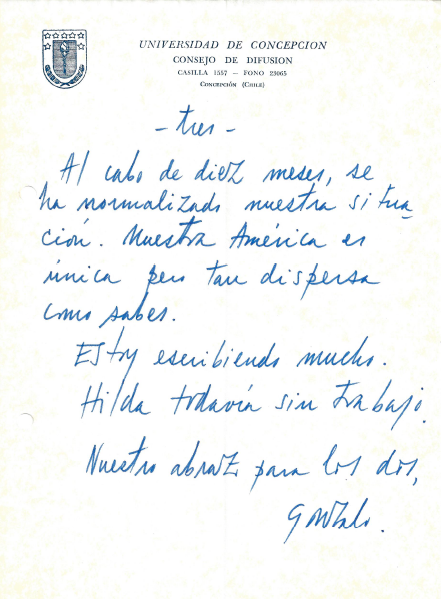 UNIVERSIDAD DE CONCEPCION
CONSEJO DE DIFUSION
CASILLA 1557 — FONO 23065
CONCEPCIÓN (CHILE)
- tres -
Al cabo de diez meses, se
ha normalizado nuestra situa
ción. Nuestra América es
única pero tan dispersa
como sabes.
Estoy escribiendo mucho.
Hilda todavía sin trabajo.
Nuestro abrazo para los dos,
Gonzalo.